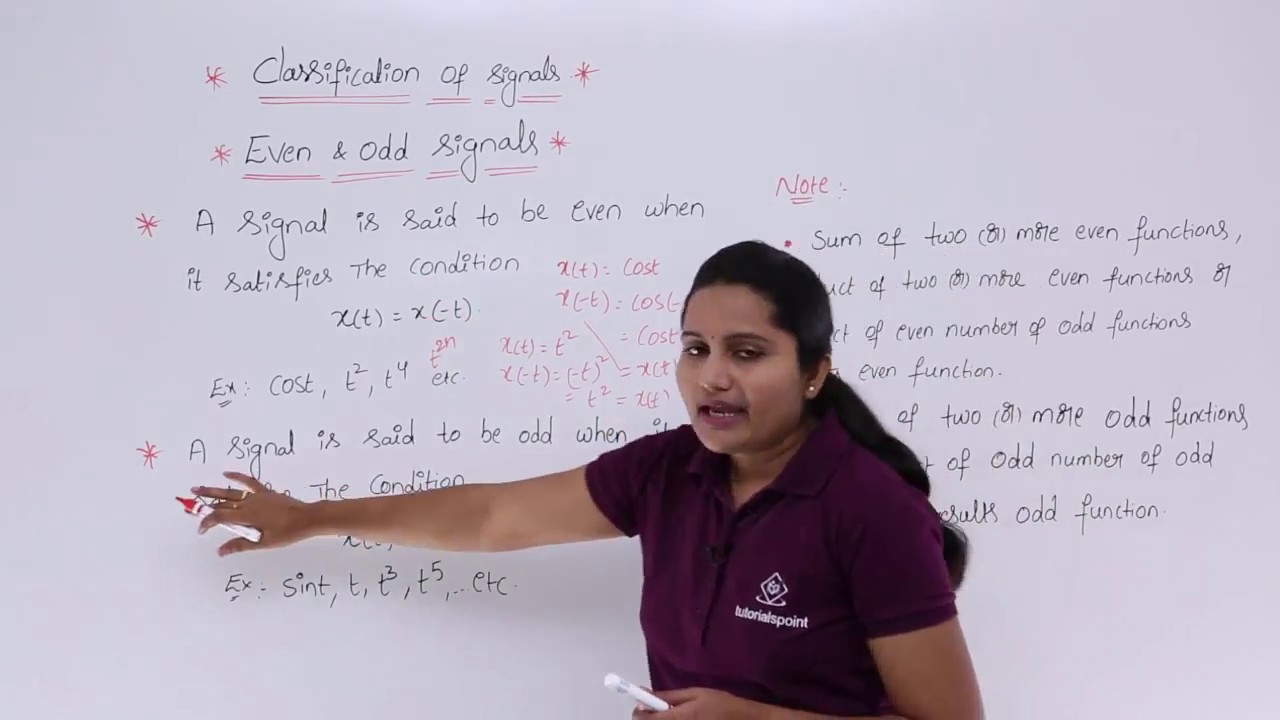 * Classification of signals *
* Even & odd signals *
* A signal is said to be even when
it satisfies The condition
x(t) = x(-t)
Ex: cost, t², t⁴ etc.
t²ⁿ
x(t) = cost
x(-t) = cos(-
= cost
= x(t)
x(t) = t²
x(-t) = (-t)²
= t² = x(t)
* A signal is said to be odd when
The condition
Ex: sint, t, t³, t⁵, ..etc.
Note:
• Sum of two (or) more even functions,
of two (or) more even functions or
of even number of odd functions
even function.
of two (or) more odd functions
of odd number of odd
odd function.
tutorialspoint